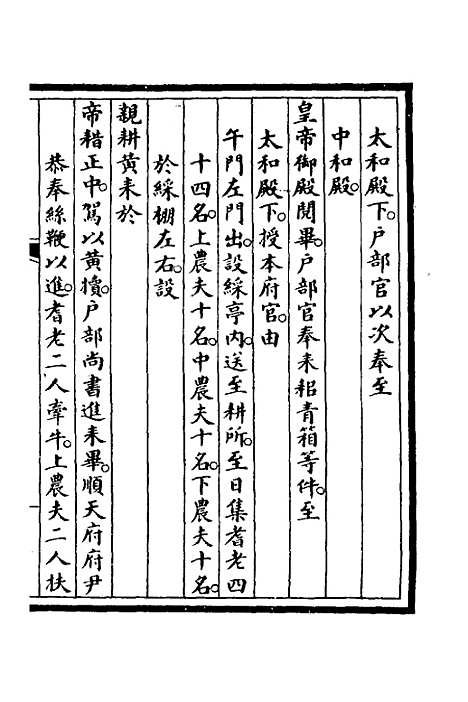 太和殿下。戶部官以次奉至
中和殿。
皇帝御殿閱畢。戶部官奉耒耜青箱等件。至
太和殿下。授本府官。由
午門左門出。設綵亭內。送至耕所。至日集耆老四
十四名。上農夫十名。中農夫十名。下農夫十名。
於綵棚左右。設
親耕黃耒於
帝耤正中。駕以黃犢。戶部尚書進耒畢。順天府府尹
恭奉絲鞭以進。耆老二人牽牛。上農夫二人扶